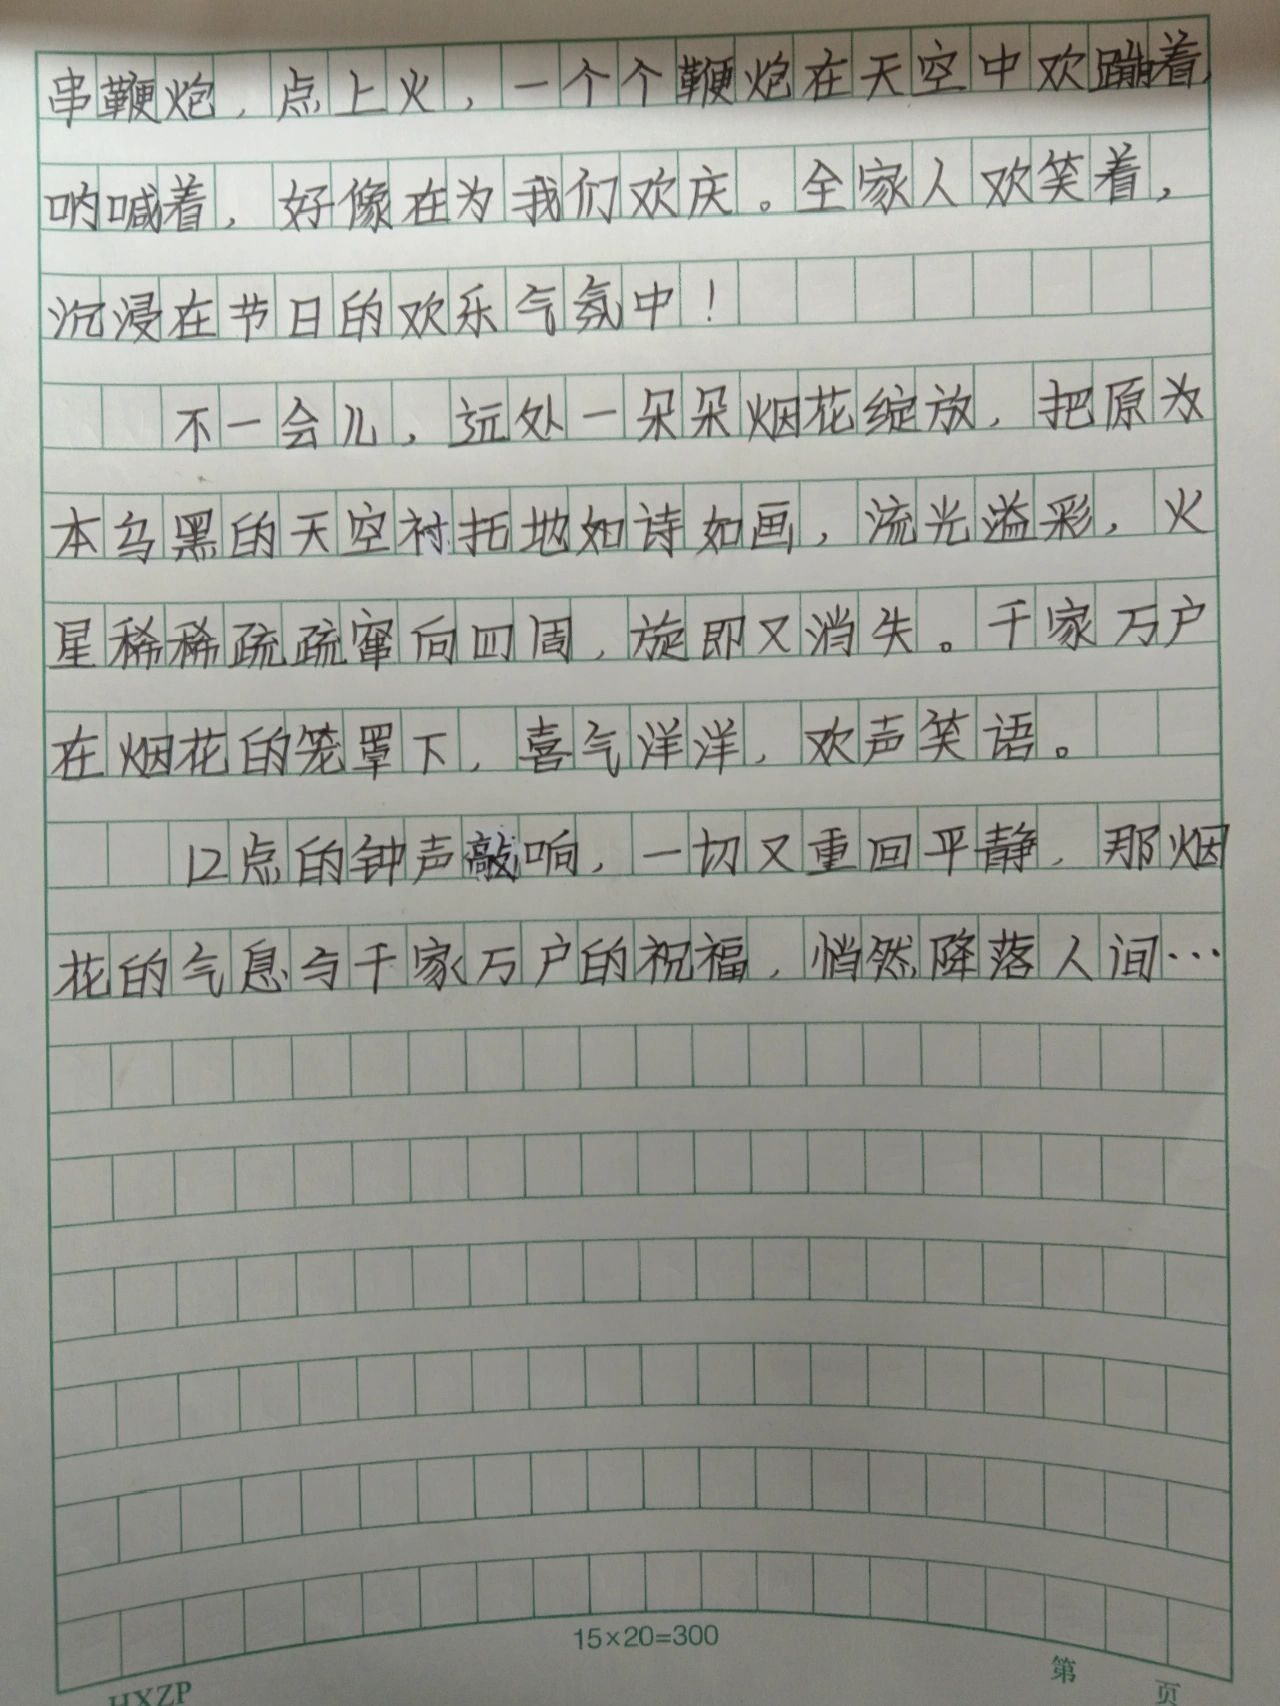 串鞭炮，点上火，一个个鞭炮在天空中欢蹦着，
呐喊着，好像在为我们欢庆。全家人欢笑着，
沉浸在节日的欢乐气氛中！
不一会儿，远处一朵朵烟花绽放，把原为
本乌黑的天空衬托地如诗如画，流光溢彩，火
星稀稀疏疏窜向四周，旋即又消失。千家万户
在烟花的笼罩下，喜气洋洋，欢声笑语。
12点的钟声敲响，一切又重回平静，那烟
花的气息与千家万户的祝福，悄然降落人间…
15×20=300
HXZP 第 页